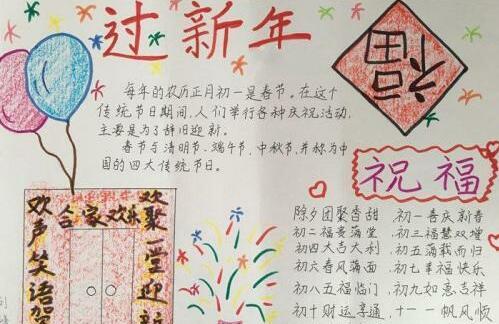 过新年
每年的农历正月初一是春节。在这个
传统节日期间,人们举行各种庆祝活动,
主要是为了辞旧迎新。
春节与清明节、端午节、中秋节,并称为中
国的四大传统节日。
福
祝福
除夕团聚香甜
初一喜庆新春
初二福贵满堂
初三福慧双增
初四大吉大利
初五满载而归
初六春风满面
初七幸福快乐
初八五福临门
初九如意吉祥
初十财运亨通
十一一帆风顺
合家欢乐
欢声笑语贺
欢聚一堂迎新